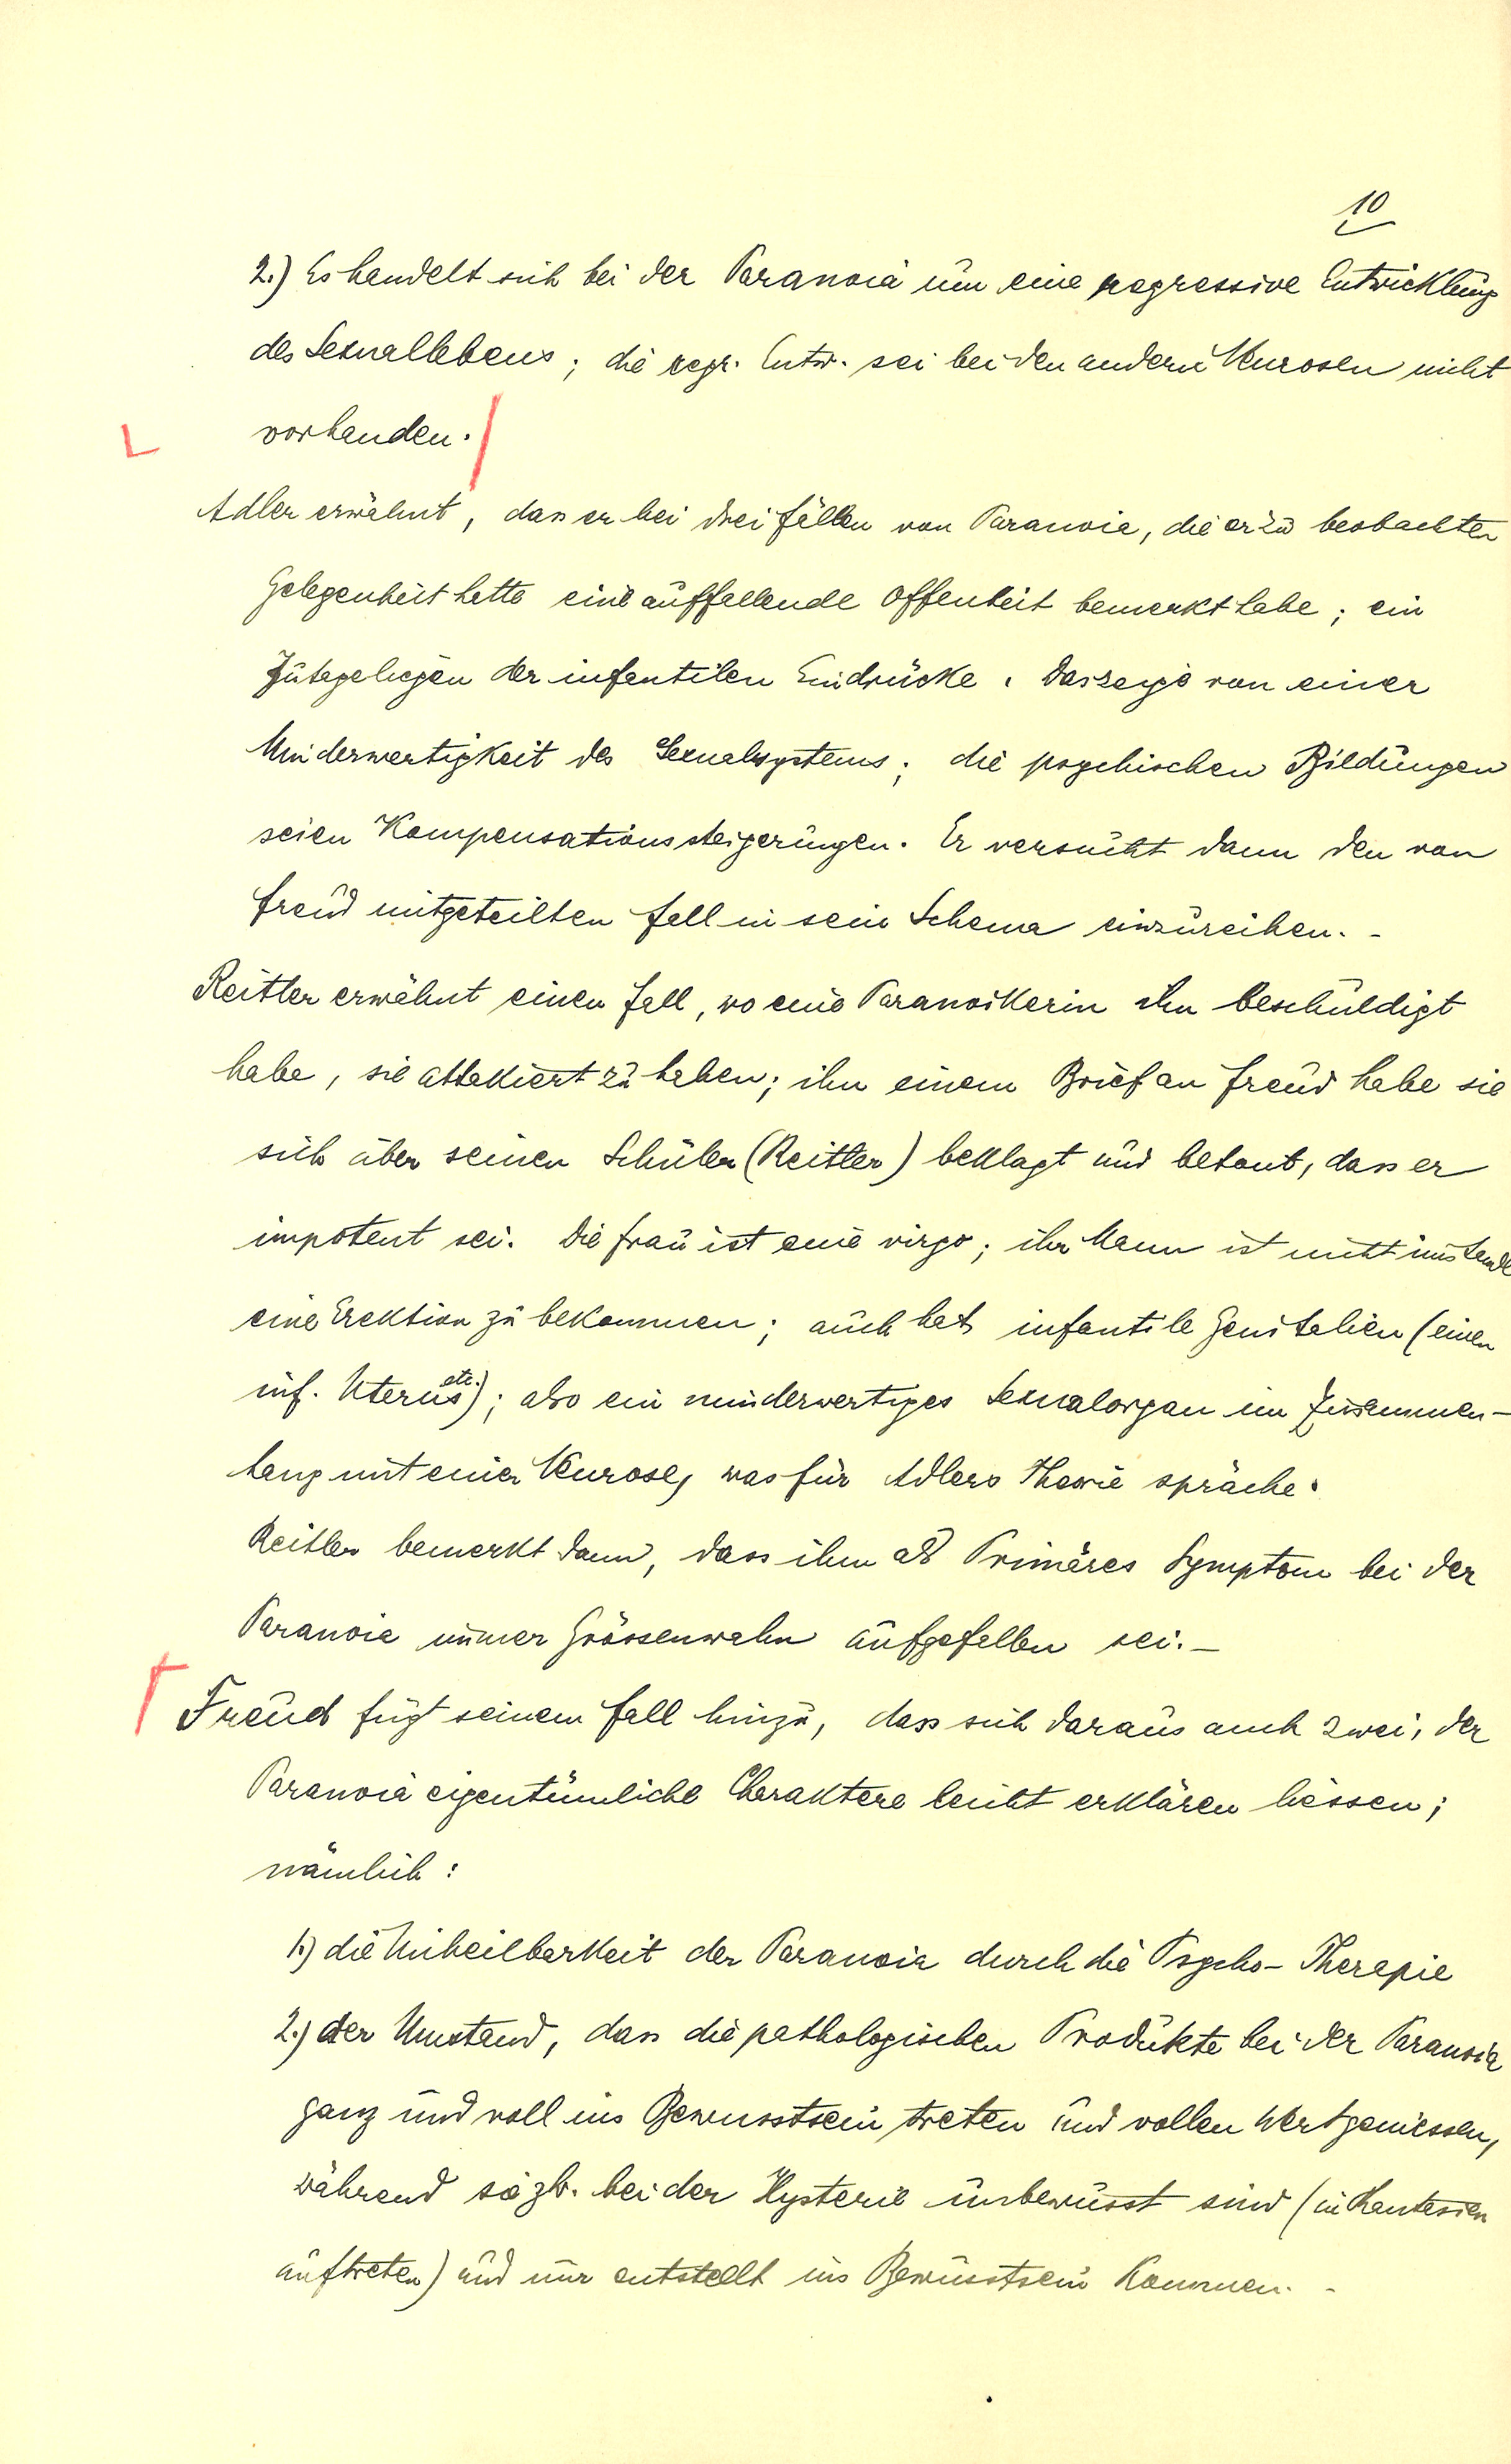 10
2.) Es handelt sich bei der Paranoia um eine regressive Entwicklung
des Sexuallebens; die regr. Entw. sei bei den andern Neurosen nicht
vorhanden.
Adler erwähnt, dass er bei drei Fällen von Paranoia, die er zu beobachten
Gelegenheit hatte eine auffallende Offenheit bemerkt habe; ein
Zutageliegen der infantilen Eindrücke. Das zeige von einer
Minderwertigkeit des Sexualsystems; die psychischen Bildungen
seien Kompensationssteigerungen. Er versucht dann den von
Freud mitgeteilten Fall in sein Schema einzureihen. -
Reitler erwähnt einen Fall, wo eine Paranoikerin ihn beschuldigt
habe, sie attakiert zu haben; ihn einem Brief an Freud habe sie
sich über seinen Schüler (Reitler) beklagt und betont, dass er
impotent sei. Die Frau ist eine virgo; ihr Mann ist nicht imstande
eine Erektion zu bekommen; auch hat infantile Genitalien (einen
inf. Uterus etc.); also ein minderwertiges Sexualorgan im Zusammen-
hang mit einer Neurose, was für Adlers Theorie spräche.
Reitler bemerkt dann, dass ihm als Primäres Symptom bei der
Paranoia immer Grössenwahn aufgefallen sei. -
Freud fügt seinem Fall hinzu, dass sich daraus auch zwei, der
Paranoia eigentümliche Charaktere leicht erklären liessen;
nämlich:
1.) die Unheilbarkeit der Paranoia durch die Psycho-Therapie
2.) der Umstand, dass die pathologischen Produkte bei der Paranoia
ganz und voll ins Bewusstsein treten und vollen Wert geniessen,
während sie zb. bei der Hysterie unbewusst sind (in Fantasien
auftreten) und nur entstellt ins Bewusstsein kommen. -